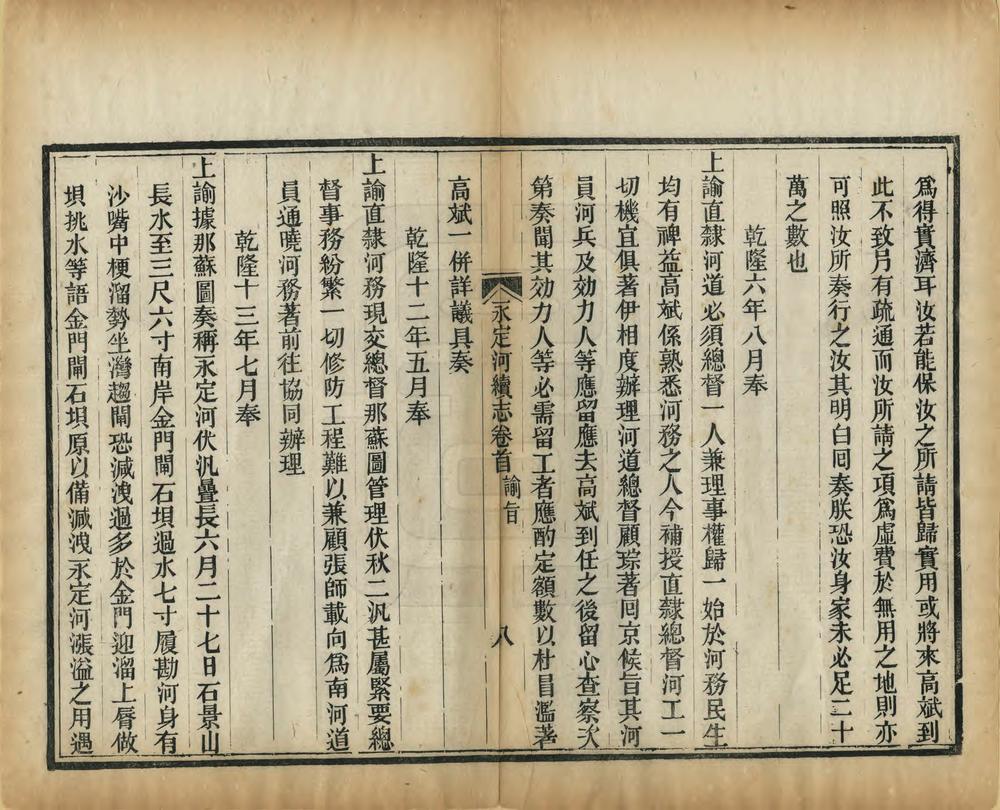 爲得實濟耳汝若能保汝之所請皆歸實用或將來高斌到
此不致另有疏通而汝所請之項爲虛費於無用之地則亦
可照汝所奏行之汝其明白囘奏朕恐汝身家未必足二十
萬之數也
乾隆六年八月奉
上諭直隸河道必須總督一人兼理事權歸一始於河務民生
均有裨益高斌係熟悉河務之人今補授直隸總督河工一
切機宜俱著伊相度辦理河道總督顧琮著囘京候旨其河
員河兵及効力人等應留應去高斌到任之後留心查察次
第奏聞其効力人等必需留工者應酌定額數以杜冒濫著
永定河續志卷首 諭旨 八
高斌一併詳議具奏
乾隆十二年五月奉
上諭直隸河務現交總督那蘇圖管理伏秋二汛甚屬緊要總
督事務紛繁一切修防工程難以兼顧張師載向爲南河道
員通曉河務著前往協同辦理
乾隆十三年七月奉
上諭據那蘇圖奏稱永定河伏汛疊長六月二十七日石景山
長水至三尺六寸南岸金門閘石壩過水七寸履勘河身有
沙嘴中梗溜勢坐灣趨閘恐減洩過多於金門迎溜上脣做
壩挑水等語金門閘石壩原以備減洩永定河漲溢之用遇